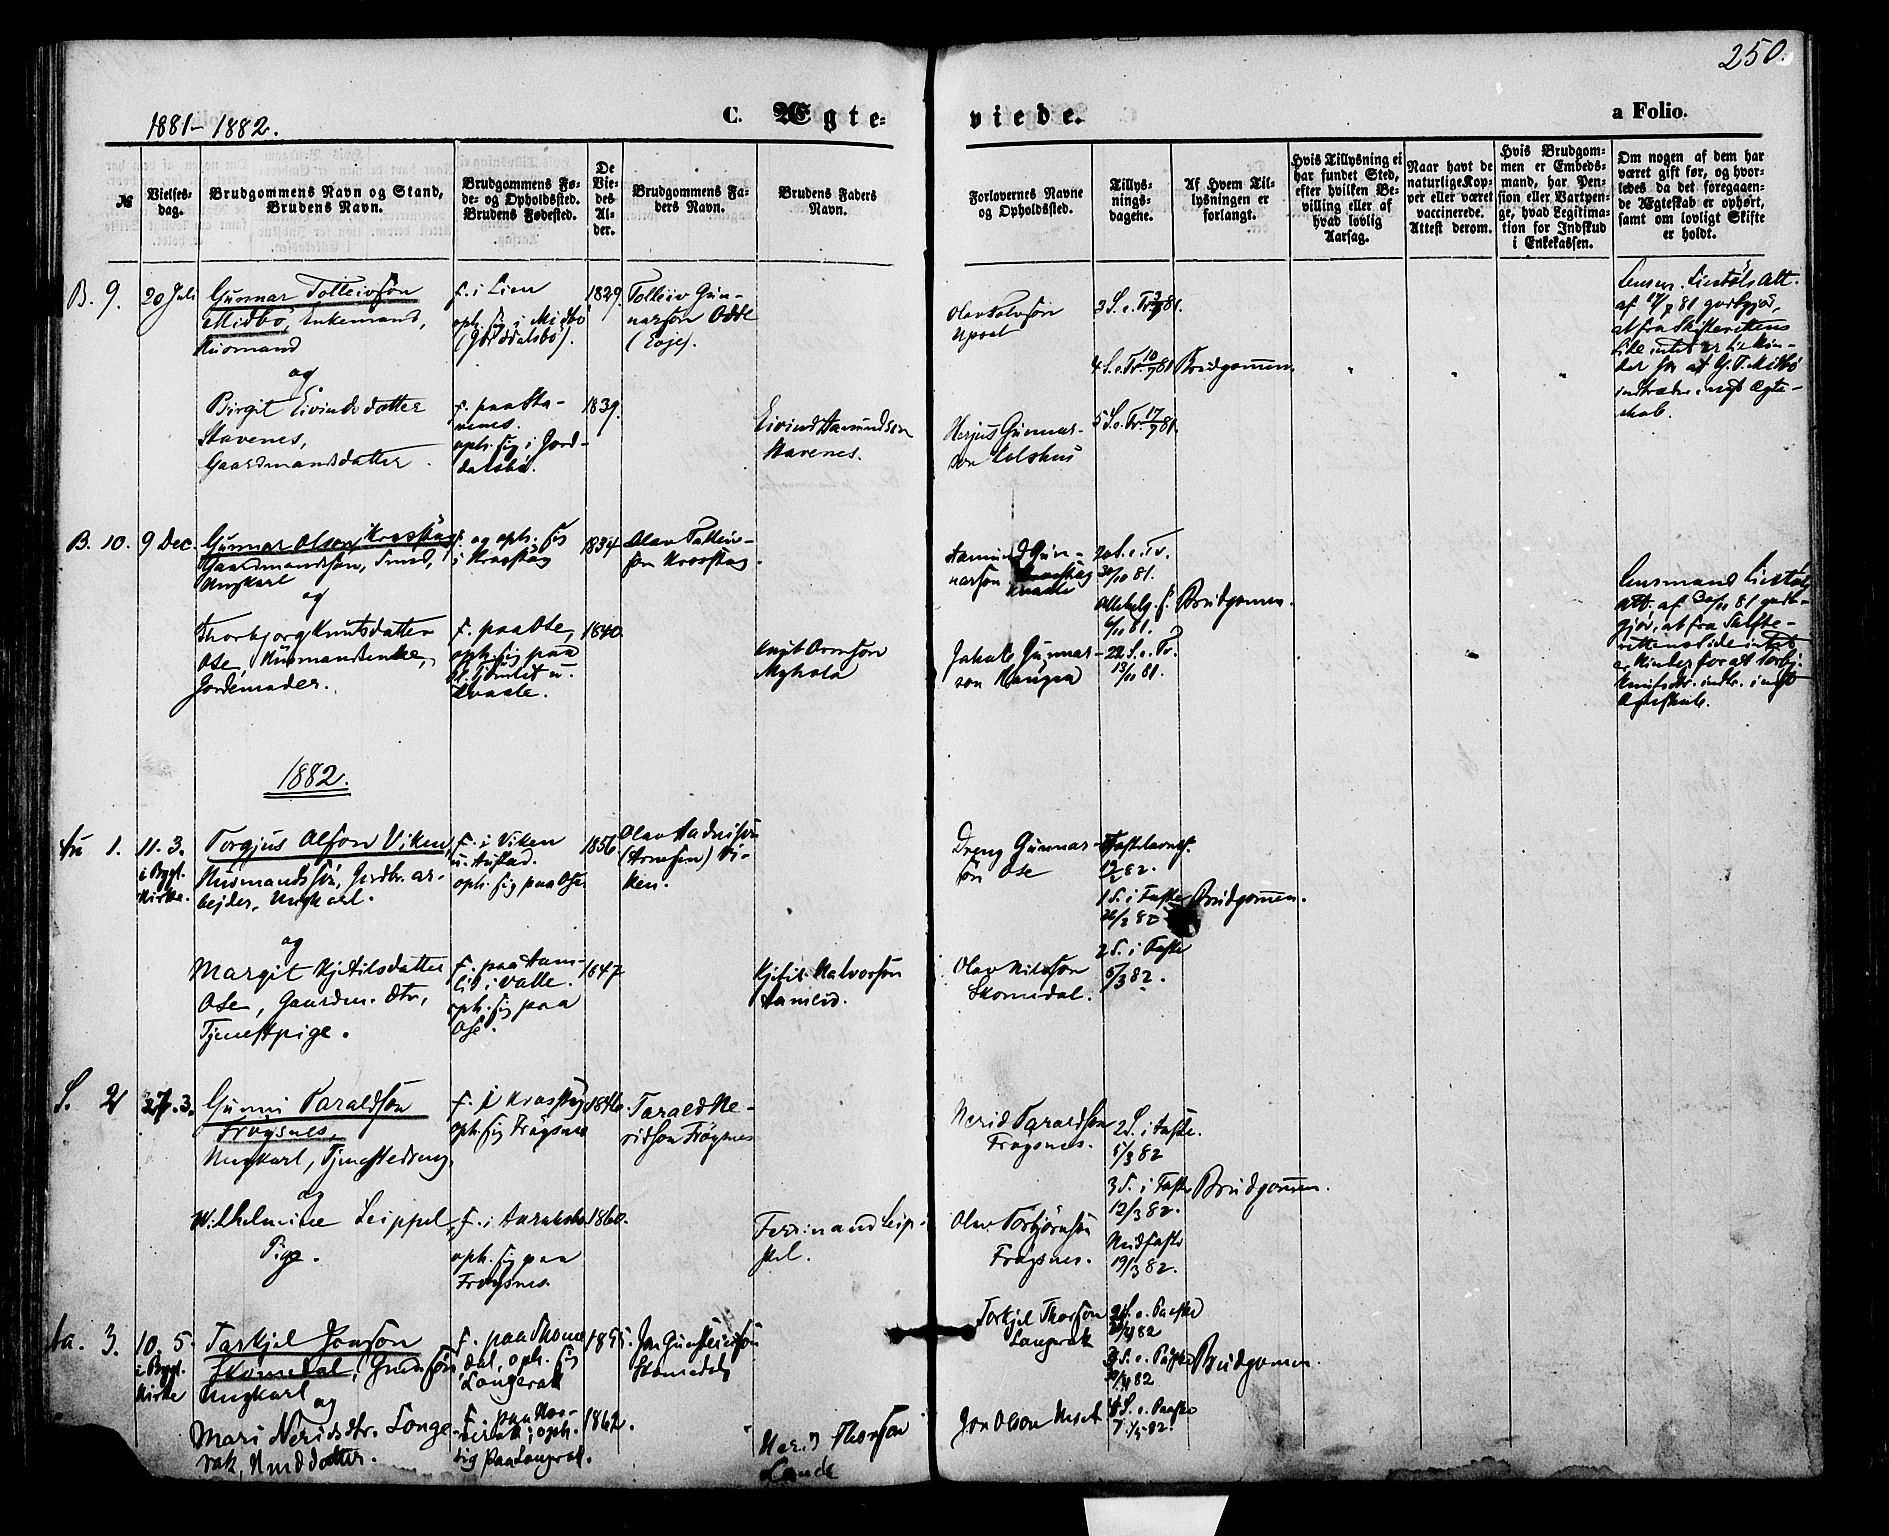 250.
1881-1882.
C. Ægte-
viede.
a Folio.
№
Vielses-
dag.
Brudgommens Navn og Stand,
Brudens Navn.
Brudgommens Fø-
de- og Opholdssted.
Brudens Fødested.
De
Vie-
des
Al-
der.
Brudgommens Fa-
ders Navn.
Brudens Faders
Navn.
Forlovernes Navne
og Opholdssted.
Tillys-
nings-
dagene.
Af Hvem Til-
lysningen er
forlangt.
Hvis Tillysning ei
har fundet Sted,
efter hvilken Be-
villing eller af
hvad lovlig
Aarsag.
Naar havt de
naturlige Kop-
per eller været
vaccinerede.
Attest derom.
Hvis Brudgom-
men er Embeds-
mand, har Pen-
sion eller Vartpen-
ge, hvad Legitima-
tion for Indskud
i Enkekassen.
Om nogen af dem har
været gift før, og hvor-
ledes da det foregaaen-
de Ægteskab er ophørt,
samt om lovligt Skifte
er holdt.
B. 9.
20 Juli
Gunnar Tolleivson
Midbø, Enkemand,
Husmand
og
Birgit Eivindsdatter
Stavenes,
Gaardmandsdatter.
F. i Lien
oph. sig i Midbø
F. paa Sta-
venes.
oph. sig i Jord-
dalsbø.
1829.
1839.
Tolleiv Gun-
narson Odde
Eivind Aamundson
Stavenes.
Olav Salvesøn
Herjus Gunnar-
3 S. e. Tr. 3/7 81.
4 S. e. Tr. 10/7 81
5 S. e. Tr. 17/7 81
Brudgommen.
af 17/7 81 godtgjør,
at fra Skifterettens
Side intet er til Hin-
der for at G. T. Midbø
indtræder i nyt Ægte-
skab.
B. 10.
9 Dec.
Gunnar Olson Kvosstøg
Gaardmandssøn, Smed,
Ungkarl
og
Thorbjorg Knutsdatter
Ose, Husmandsenke,
Jordemoder.
F. og oph. sig
i Kvosstøg
F. paa Ose,
oph. sig paa
1834
1840.
Olav Tolleiv-
son Kvosstøg.
Knut Ormson
Aamund Gun-
narson
Jakob Gunnar-
son Haugen
20 S. e. Tr.
30/10 81.
Allehelg. f.
6/11 81.
22 S. e. Tr.
13/11 81.
Brudgommen.
Lensmand
att. af 30/11 81 godt-
gjør, at fra Skifte-
rettens Side intet
er Hinder for at Torbj.
Knutsdtr. indtr. i nyt
Ægteskab.
1882.
Au 1.
11. 3.
i Bygl.
Kirke.
Torgjus Olson Viken,
Husmandssøn, Jordbr. ar-
bejder, Ungkarl.
og
Margit Kjetilsdatter
Ose, Gaardm. Dtr,
Tjenestpige.
F. i Viken
u. Austad.
oph. sig paa Ose
F. paa Aam-
lid i Valle.
oph. sig paa
Ose.
1856.
1847
Olav Aadneson
(Arneson) Vi-
ken.
Kjetil Halvorson
Aamlid.
Dreng Gunnar-
son Ose
Olav Nilsson
Skomedal.
Fastelavnsf.
19/2 82.
1 S. i Faste
26/2 82
2 S. i Faste
5/3 82.
Brudgommen.
S. 2
27. 3.
Gunni Taraldson
Frøysnes,
Ungkarl, Tjenestedreng
og
Wilhelmine Leippel,
Pige.
F. i Kvosstøg
oph. sig Frøysnes
oph. sig paa
Frøysnes.
1846.
1860.
Tarald Ne-
ridson Frøysnes
Ferdinand Leip-
pel.
Nerid Taraldson
Frøysnes.
Olav Torbjørnson
Frøysnes.
2 S. i Faste.
5/3 82
3 S. i Faste
12/3 82.
Midfaste
19/3 82.
Brudgommen.
Aa. 3.
10. 5
i Bygl.
Kirke
Tarkjel Jonson
Skomedal, Grdmsøn,
Ungkarl
og
Mari Neridsdtr. Longe-
rak, Grmddatter.
F. paa Skome-
dal, oph. sig
Longerak
sig paa Longerak.
1855.
1862.
Jon Gunsteinson
Skomedal
Nerid Thorson
Lande
Torkjel Thorson
Longerak
Jon Olson Neset
2 S. e. Paaske
82
3 S. e. Paaske
82
4 S. e. Paaske
7/5 82.
Brudgommen.